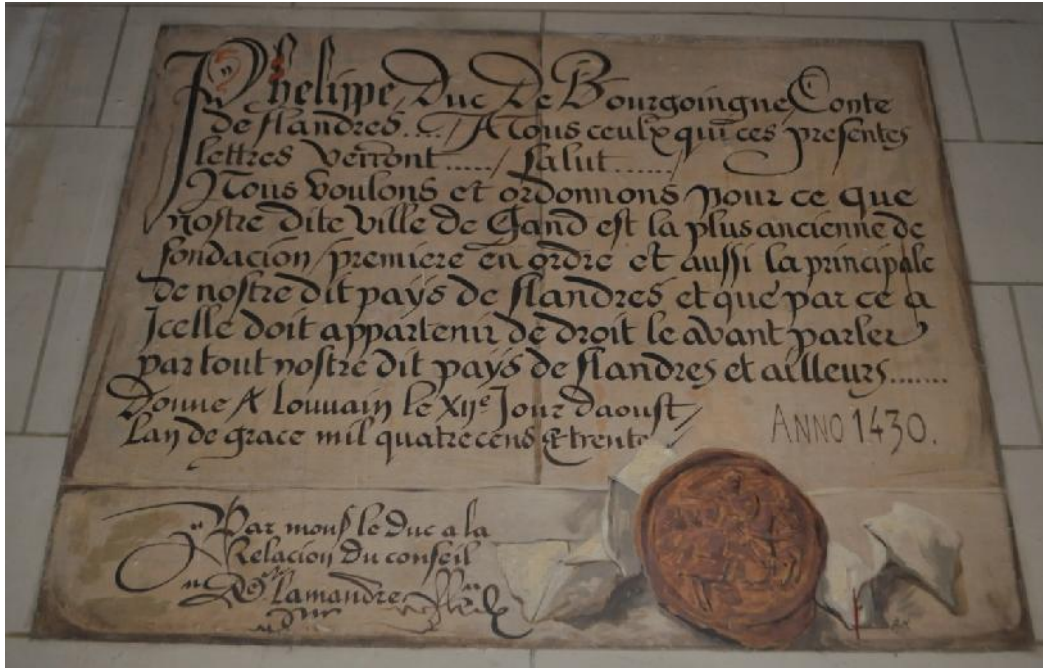 Phelippe, Duc De Bourgoingne, Conte
de flandres.... A Tous ceulx qui ces presentes
lettres verront...../ salut....../
Nous voulons et ordonnons pour ce que
nostre dite ville de Gand est la plus ancienne de
fondacion / premiere en ordre et aussi la principale
de nostre dit pays de flandres et que par ce a
Icelle doit appartenir de droit le avant parler
par tout nostre dit pays de flandres et ailleurs.......
Donne A louvain le xije Jour daoust /
lan de grace mil quatrecens & trente
ANNO 1430.
Par mons le Duc a la
Relacion du conseil